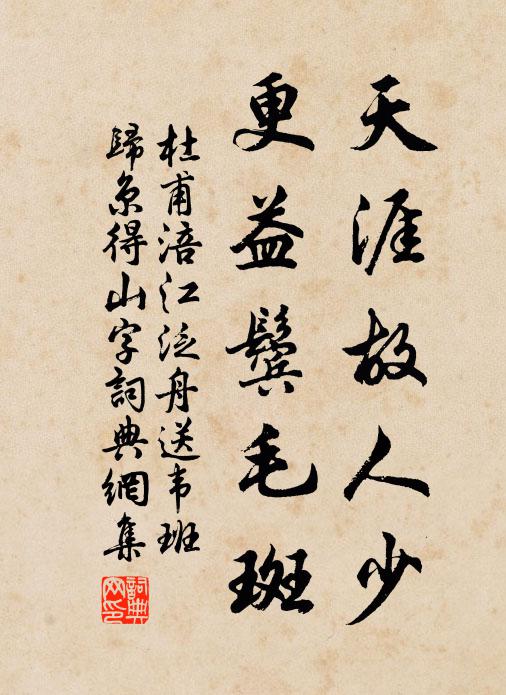 天涯故人少
更益鬢毛斑
杜甫涪江泛舟送韦班
歸京得山字詞典網集
詞典
网印